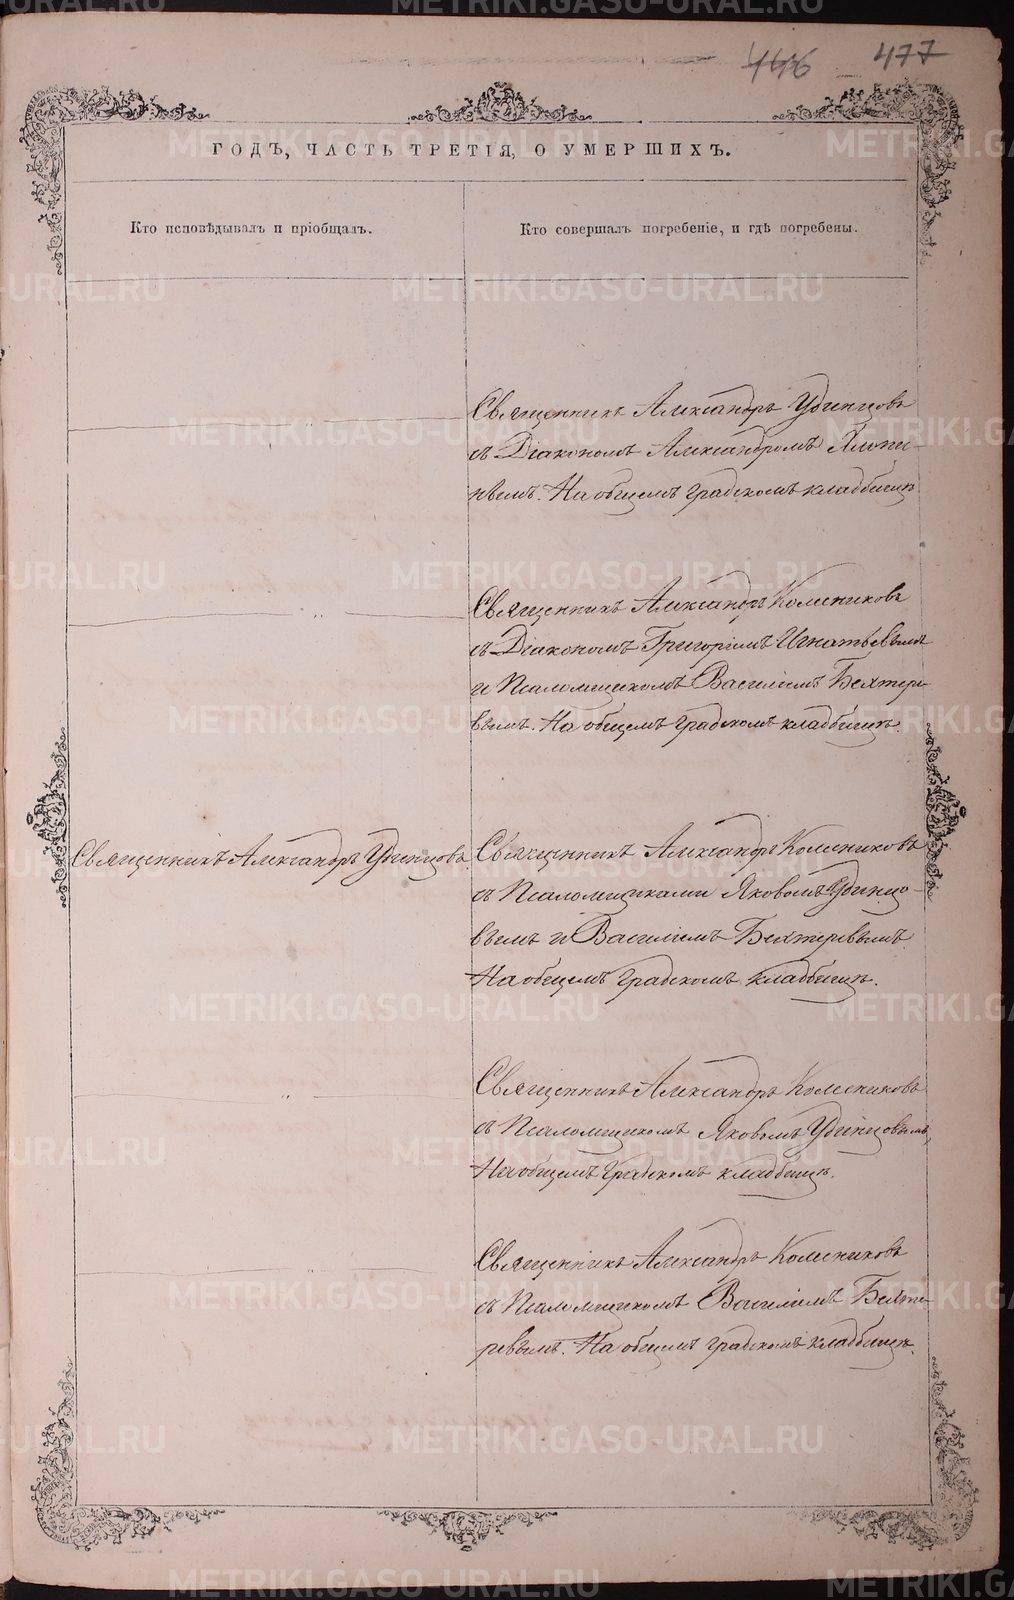 446 477
ГОДЪ, ЧАСТЬ ТРЕТІЯ, О УМЕРШИХЪ.
Кто исповѣдывалъ и пріобщалъ.
Кто совершалъ погребеніе, и гдѣ погребены.
Священникъ Александръ Удинцовъ
съ Діакономъ Александромъ
На общемъ градскомъ кладбищѣ
Священникъ Александръ Колесниковъ
съ Діакономъ Григоріемъ Игнатьевымъ
и Псаломщикомъ Василіемъ Бехтере-
вымъ. На общемъ градскомъ кладбищѣ.
Священникъ Александръ Удинцовъ.
Священникъ Александръ Колесниковъ
съ Псаломщиками Яковомъ Удинцо-
вымъ и Василіемъ Бехтеревымъ.
На общемъ градскомъ кладбищѣ.
Священникъ Александръ Колесниковъ
съ Псаломщикомъ Яковомъ Удинцовымъ,
На общемъ градскомъ кладбищѣ.
Священникъ Александръ Колесниковъ
съ Псаломщикомъ Василіемъ Бехте-
ревымъ. На общемъ градскомъ кладбищѣ.
METRIKI.GASO-URAL.RU